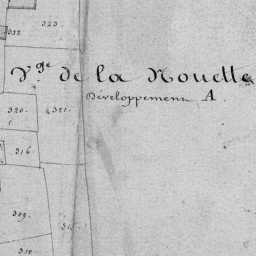 323
322
V.ge de la Nouette
Développement A
320.
321.
316.
309.
310.